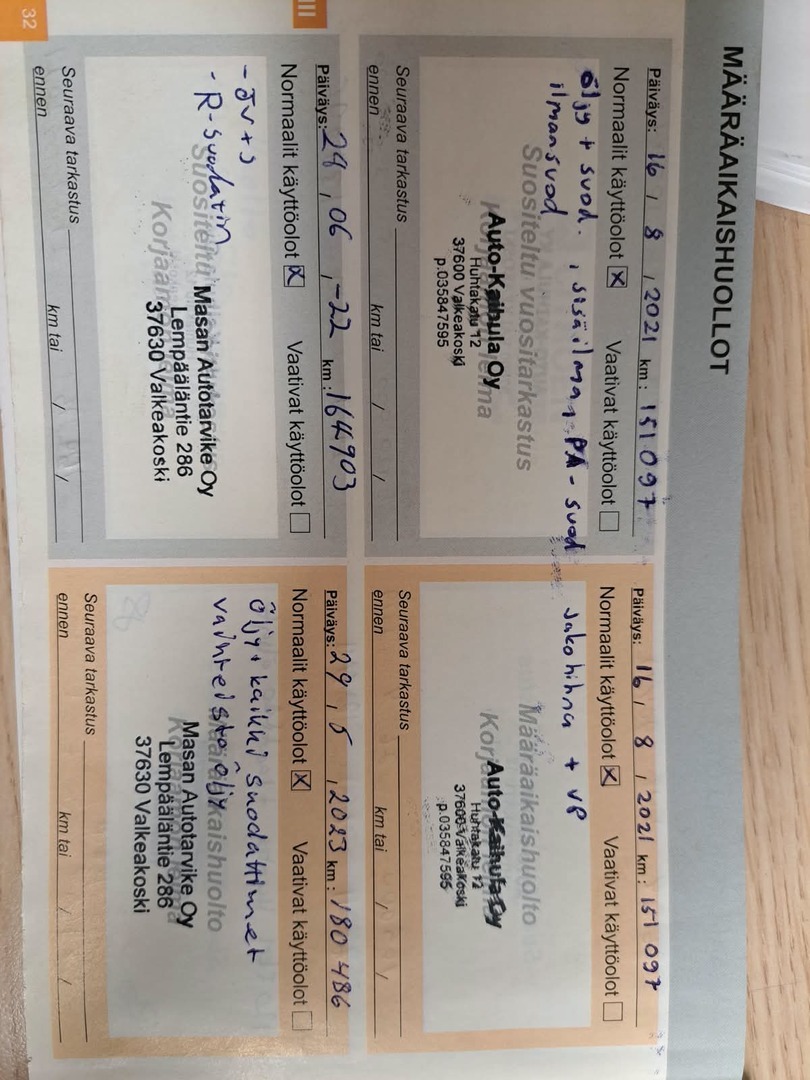 MÄÄRÄAIKAISHUOLLOT
Päiväys: 16 / 8 / 2021 km: 151 097
Normaalit käyttöolot ☒ Vaativat käyttöolot ☐
Öljy + suod. , sisäilman, PA-suod
ilmansuod
Suositeltu vuositarkastus
Auto-Kaihula Oy
Huhtakatu 12
37600 Valkeakoski
p.035847595
Seuraava tarkastus
ennen km tai / /
Päiväys: 16 / 8 / 2021 km: 151 097
Normaalit käyttöolot ☒ Vaativat käyttöolot ☐
Jakohihna + VP
Määräaikaishuolto
Auto-Kaihula Oy
Huhtakatu 12
37600 Valkeakoski
p.035847595
Seuraava tarkastus
ennen km tai / /
Päiväys: 29 / 06 / -22 km: 164903
Normaalit käyttöolot ☒ Vaativat käyttöolot ☐
- öv + s
- R-suodatin
Suositeltu
Masan Autotarvike Oy
Lempääläntie 286
37630 Valkeakoski
Seuraava tarkastus
ennen km tai / /
Päiväys: 29 / 5 / 2023 km: 180 486
Normaalit käyttöolot ☒ Vaativat käyttöolot ☐
Öljy + kaikki suodattimet
vaihteistoöljy
Määräaikaishuolto
Masan Autotarvike Oy
Lempääläntie 286
37630 Valkeakoski
Seuraava tarkastus
ennen km tai / /
III
32